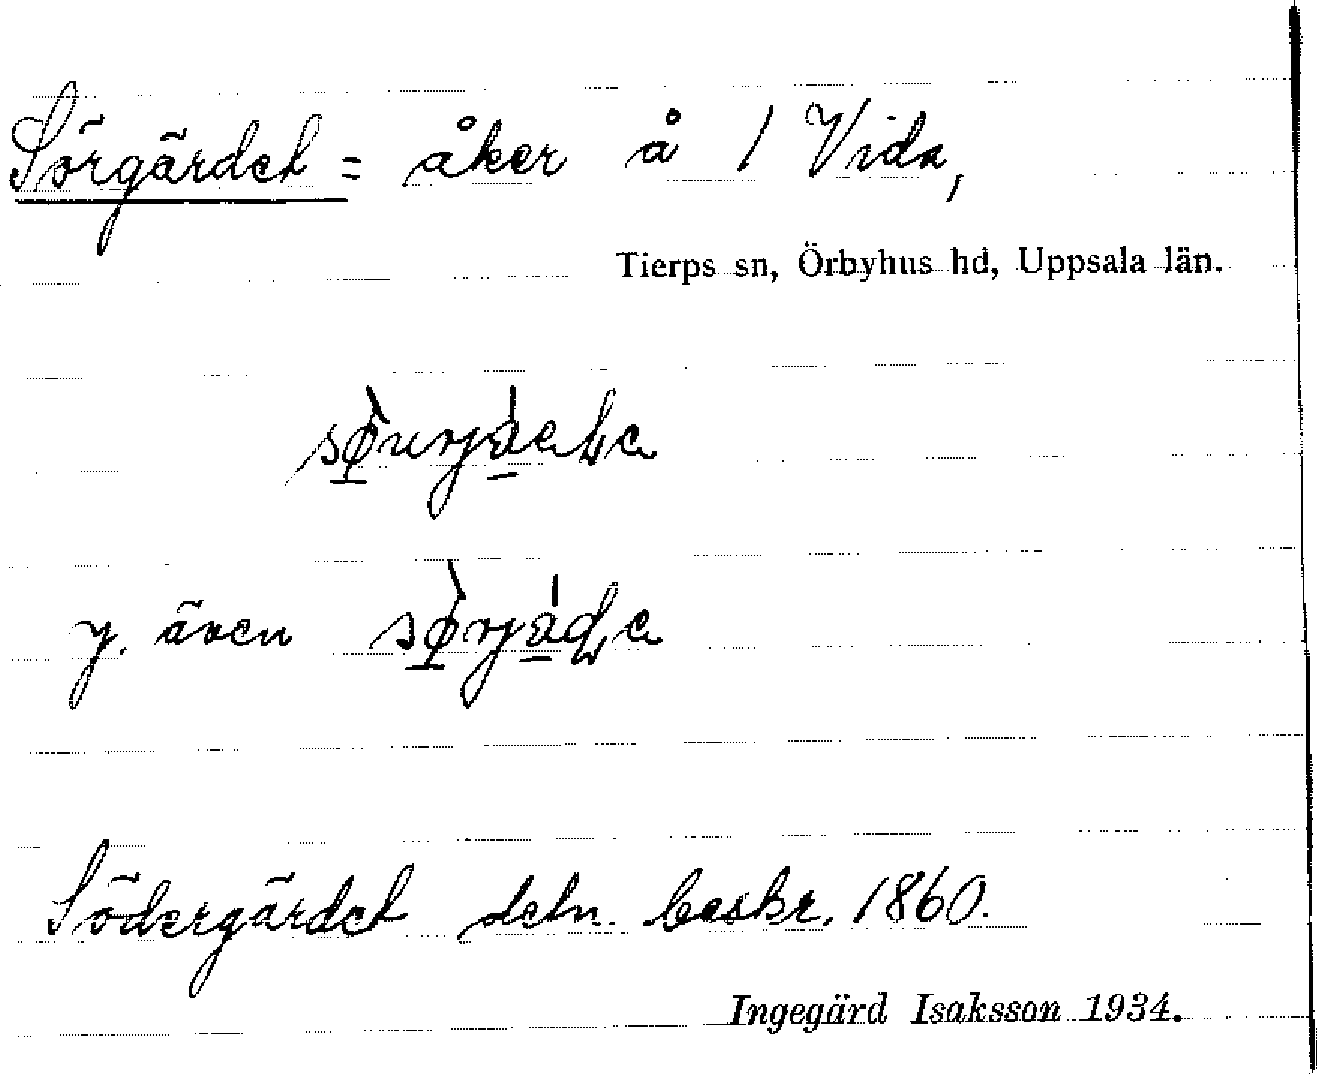 Sörgärdet = åker å 1 Vida,
Tierps sn, Örbyhus hd, Uppsala län.
y. även
Södergärdet detn. beskr. 1860.
Ingegärd Isaksson 1934.